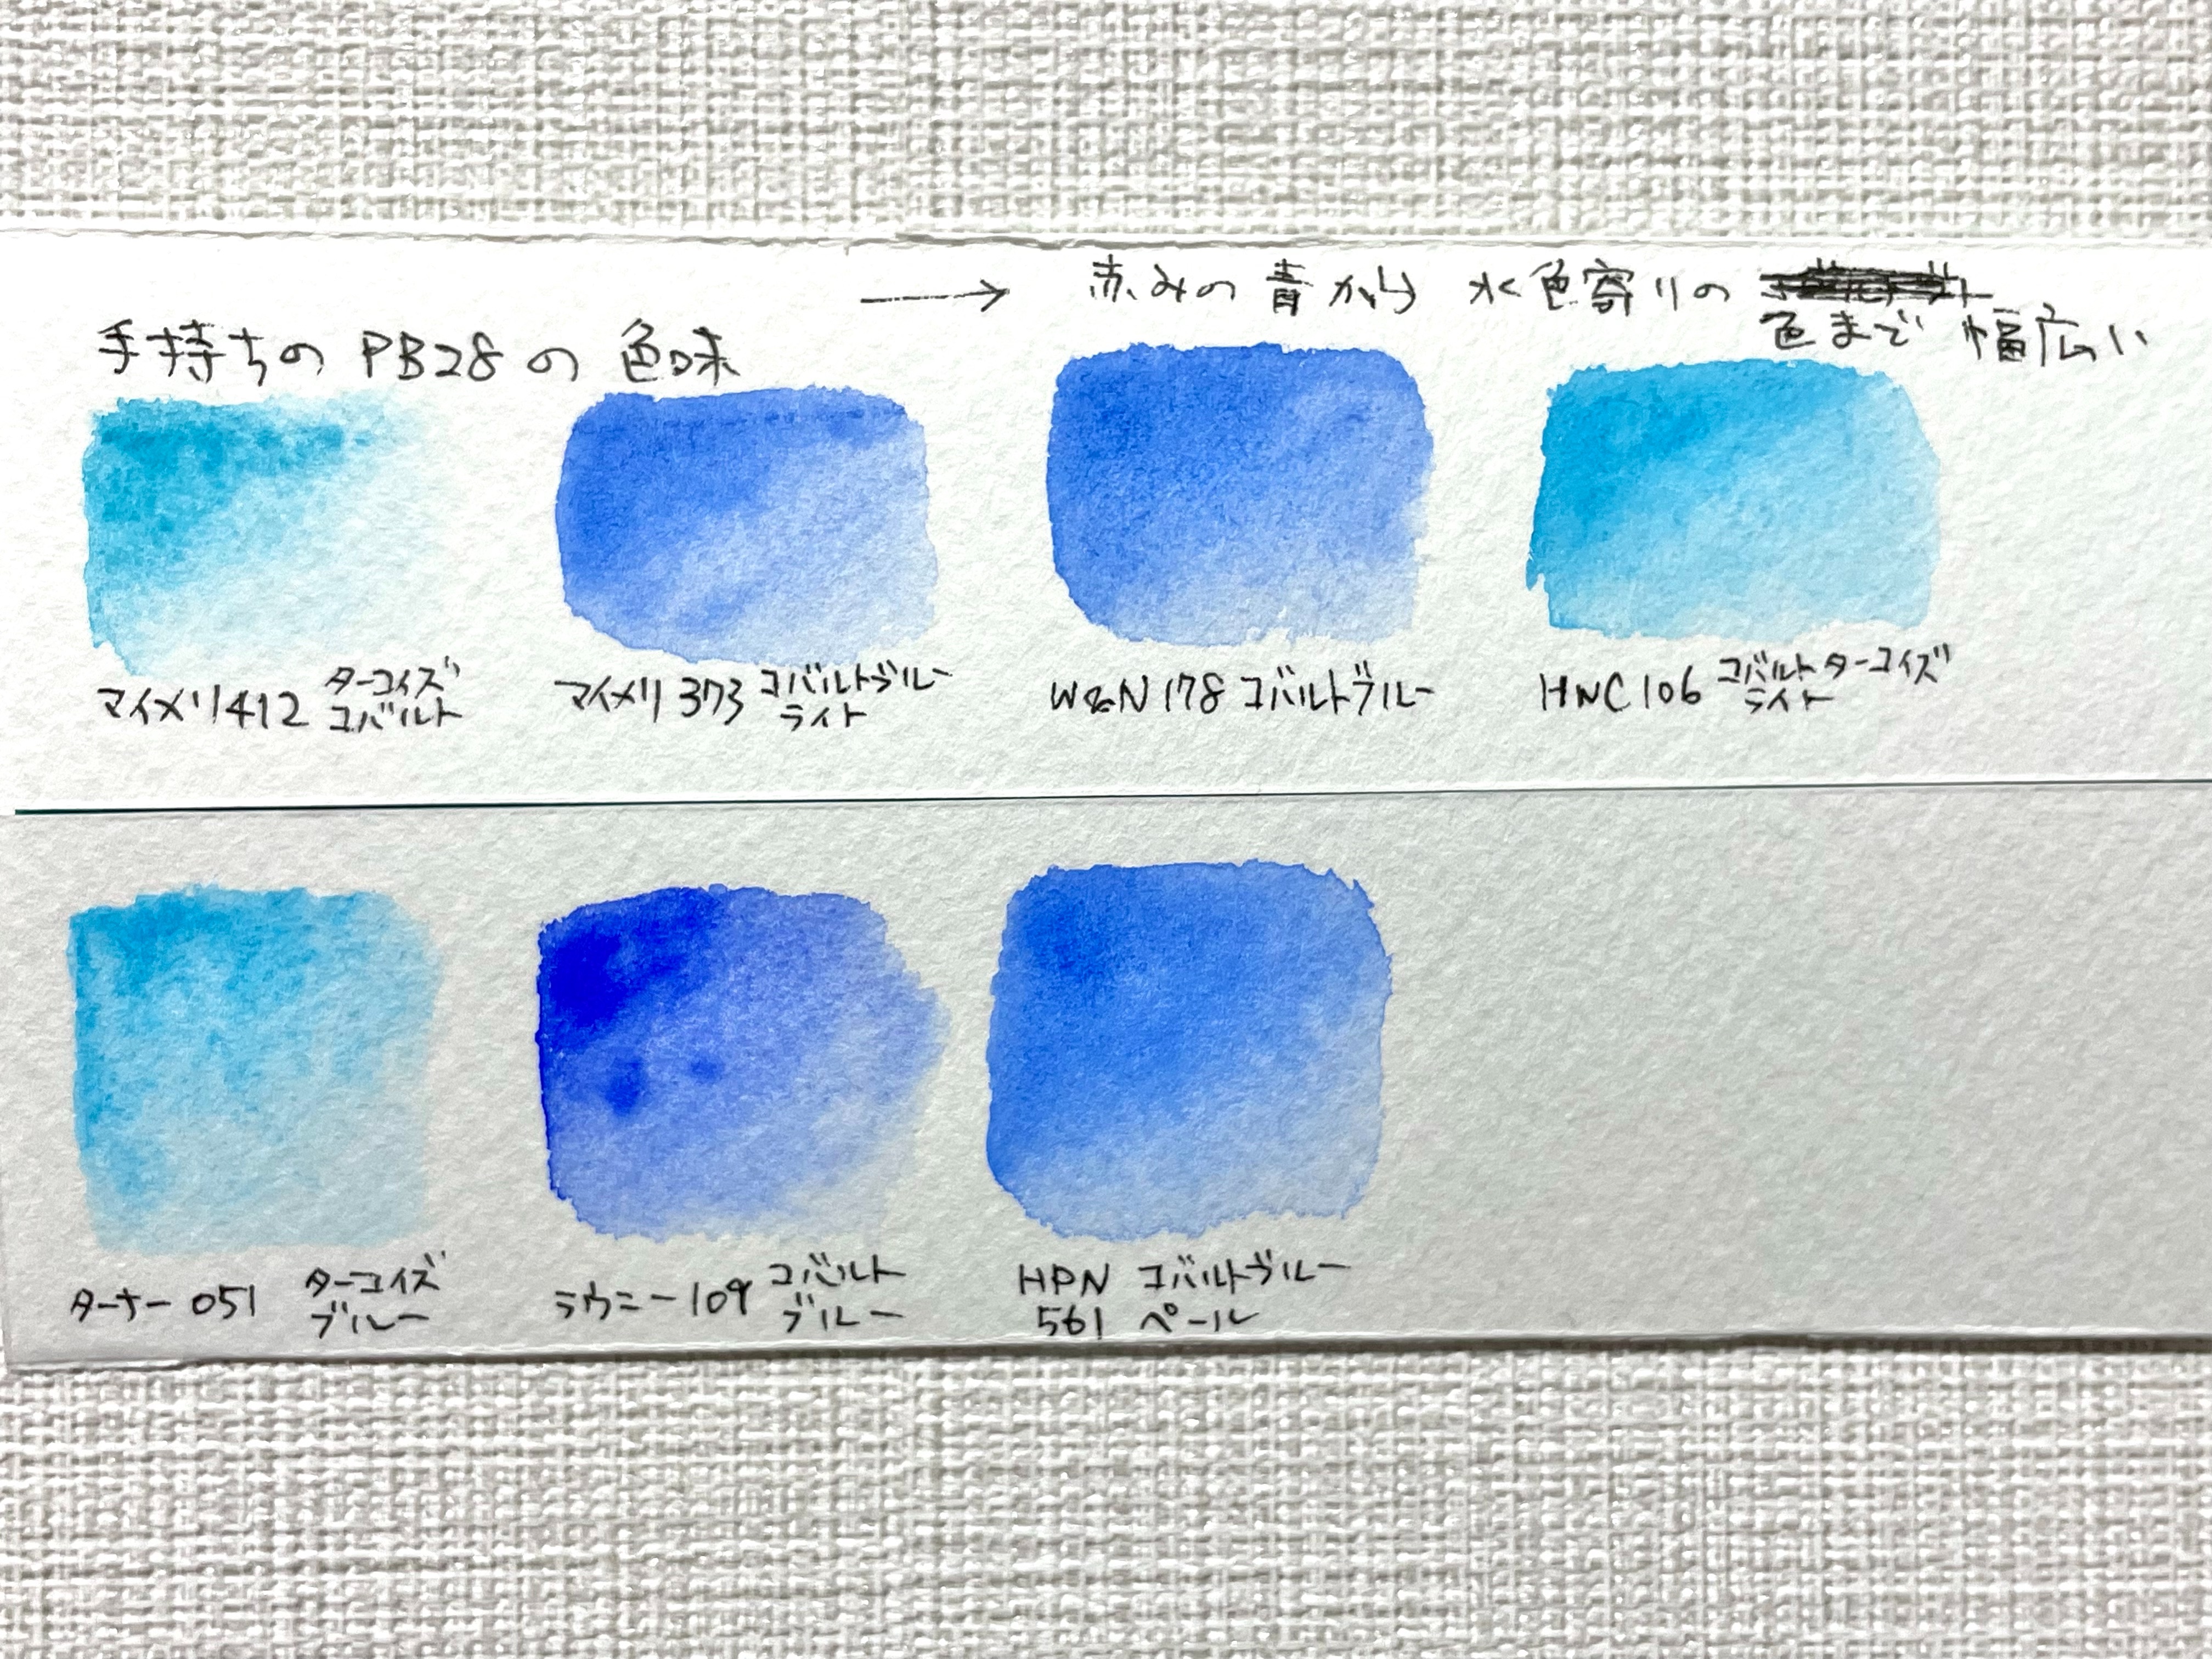 手持ちの PB28の 色味
→ 赤みの 青から 水色寄りの
色まで 幅広い
マイメリ412 ターコイズ
コバルト
マイメリ 373 コバルトブルー
ライト
W&N 178 コバルトブルー
HNC106 コバルトターコイズ
ライト
ターナー 051 ターコイズ
ブルー
ラウニー109 コバルト
ブルー
HPN コバルトブルー
561 ペール